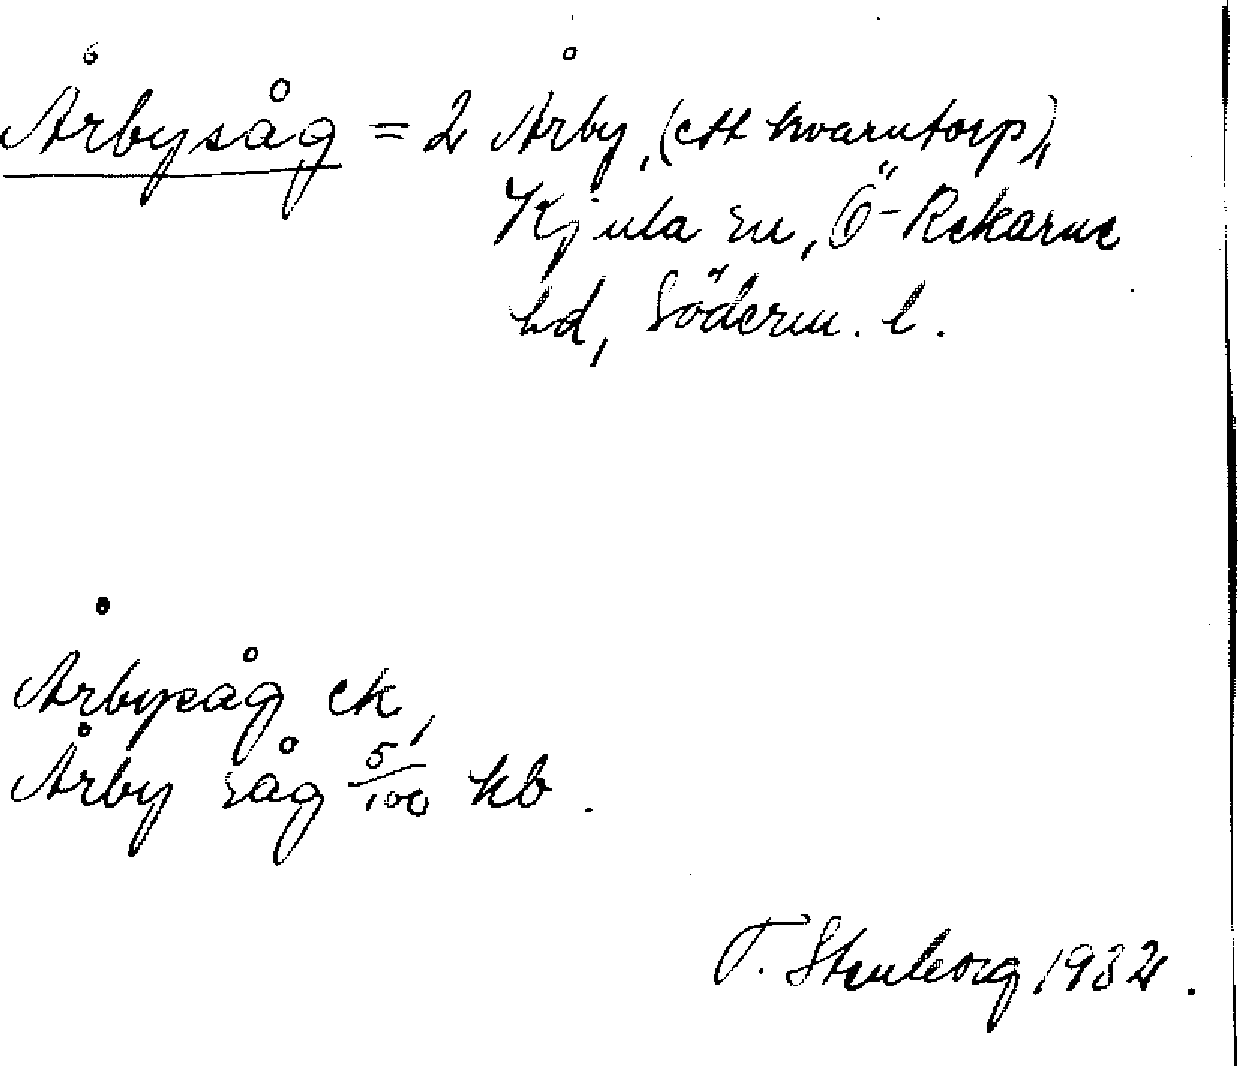 Årbysåg = 2 Årby, (ett kvarntorp),
Kjula sn, Ö-Rekarne
hd, Söderm. l.
Årbysåg ek,
Årby såg 5/100 kb.
T. Stenborg 1932.